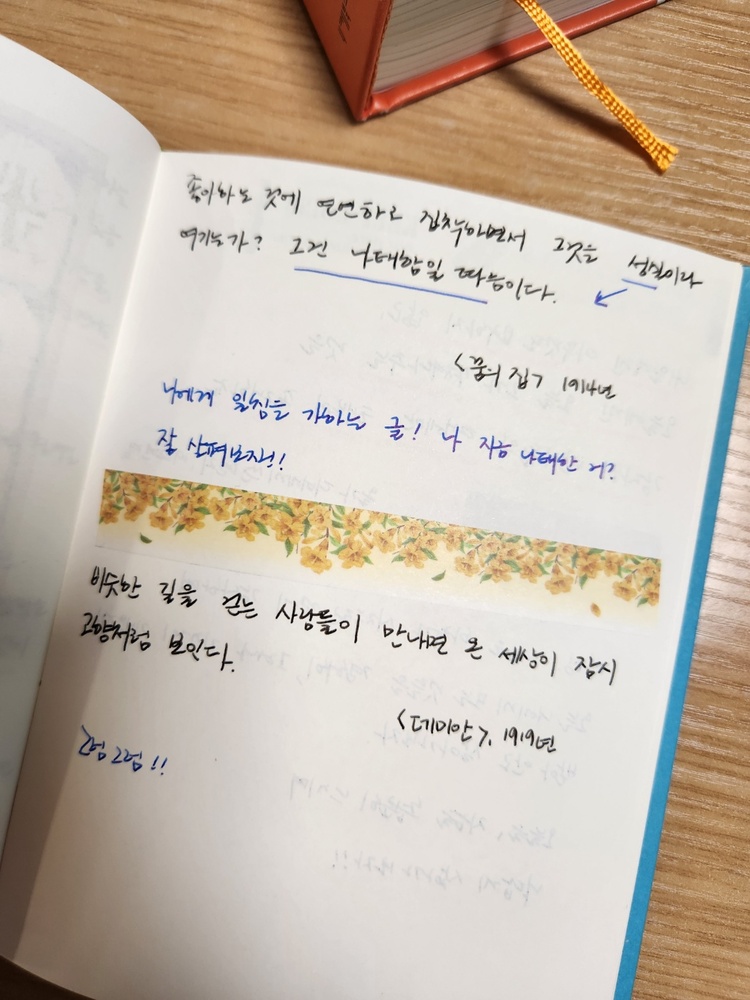 좋아하는 것에 연연하고 집착하면서 그것을 성실이라
여기는가? 그건 나태함일 따름이다.
<꿈의 집> 1914년
나에게 일침을 가하는 글! 나 지금 나태한 거?
잘 살펴보자!!
비슷한 길을 걷는 사람들이 만나면 온 세상이 잠시
고향처럼 보인다.
<데미안>, 1919년
그럼 그럼!!